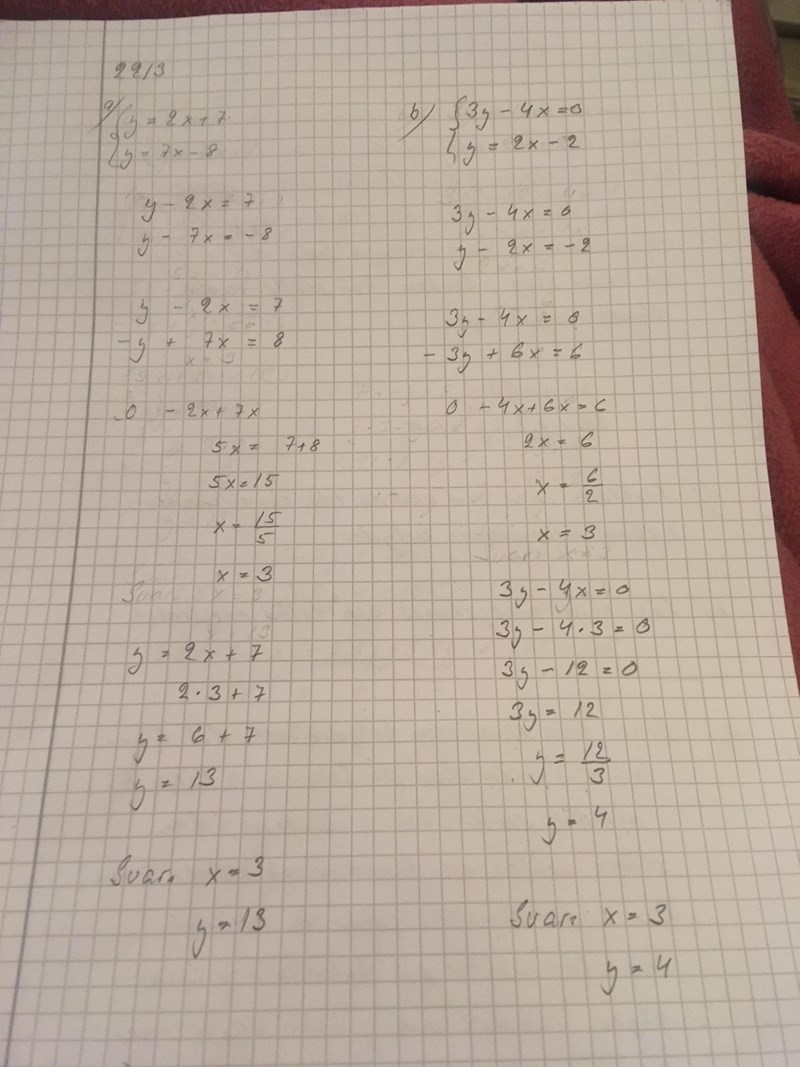 2213
a) { y = 2x + 7
y = 7x - 8
y - 2x = 7
y - 7x = -8
y - 2x = 7
-y + 7x = 8
0 - 2x + 7x
5x = 7+8
5x = 15
x = 15/5
x = 3
y = 2x + 7
2·3 + 7
y = 6 + 7
y = 13
Svar: x = 3
y = 13
b) { 3y - 4x = 0
y = 2x - 2
3y - 4x = 0
y - 2x = -2
3y - 4x = 0
- 3y + 6x = 6
0 - 4x + 6x = 6
2x = 6
x = 6/2
x = 3
3y - 4x = 0
3y - 4·3 = 0
3y - 12 = 0
3y = 12
y = 12/3
y = 4
Svar: x = 3
y = 4